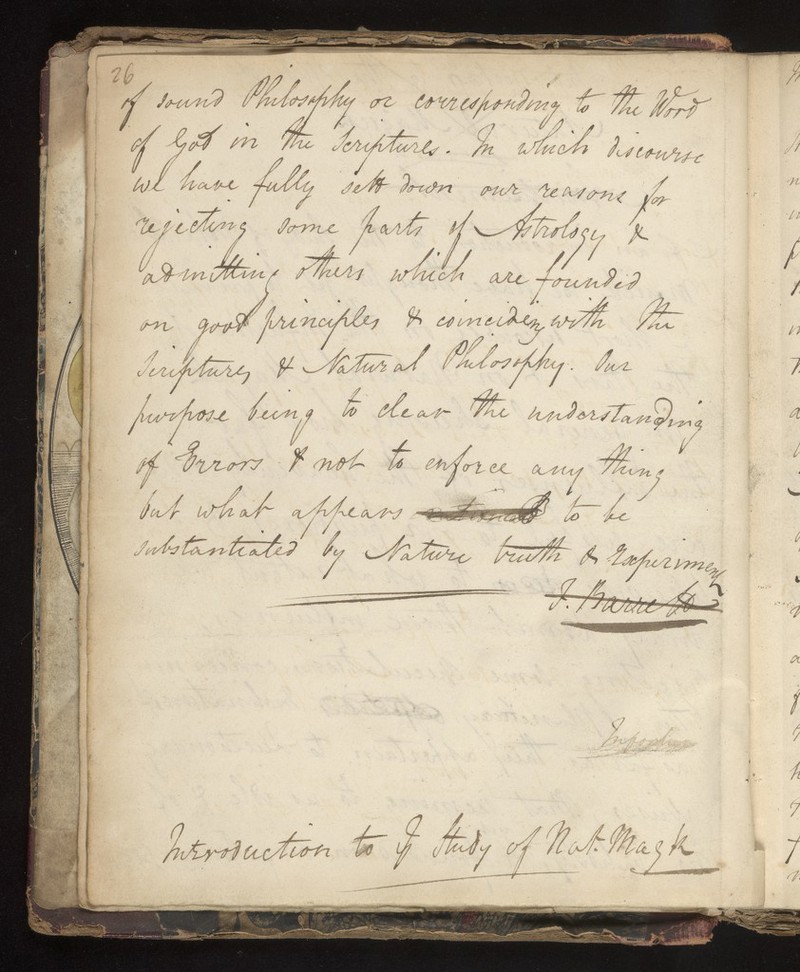 26
of sound Philosophy or corresponding to the Word
of God in the Scriptures. In which discourse
we have fully sett down our reasons for
rejecting some parts of Astrology &
admitting others which are founded
on good principles & coinciding with the
Scriptures & Natural Philosophy. Our
purpose being to clear the understanding
of Errors & not to enforce any thing
but what appears to be
substantiated by Nature truth & Experiment
F. Barrett
Introduction to ye Study of Nat. Magick